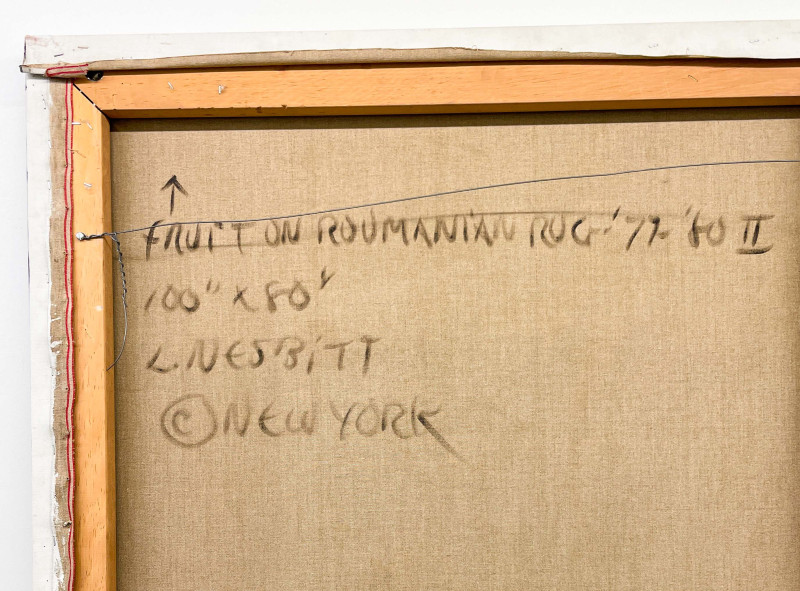 ↑
FRUIT ON ROUMANIAN RUG-'79-'80 II
100" X 80"
L. NESBITT
© NEW YORK